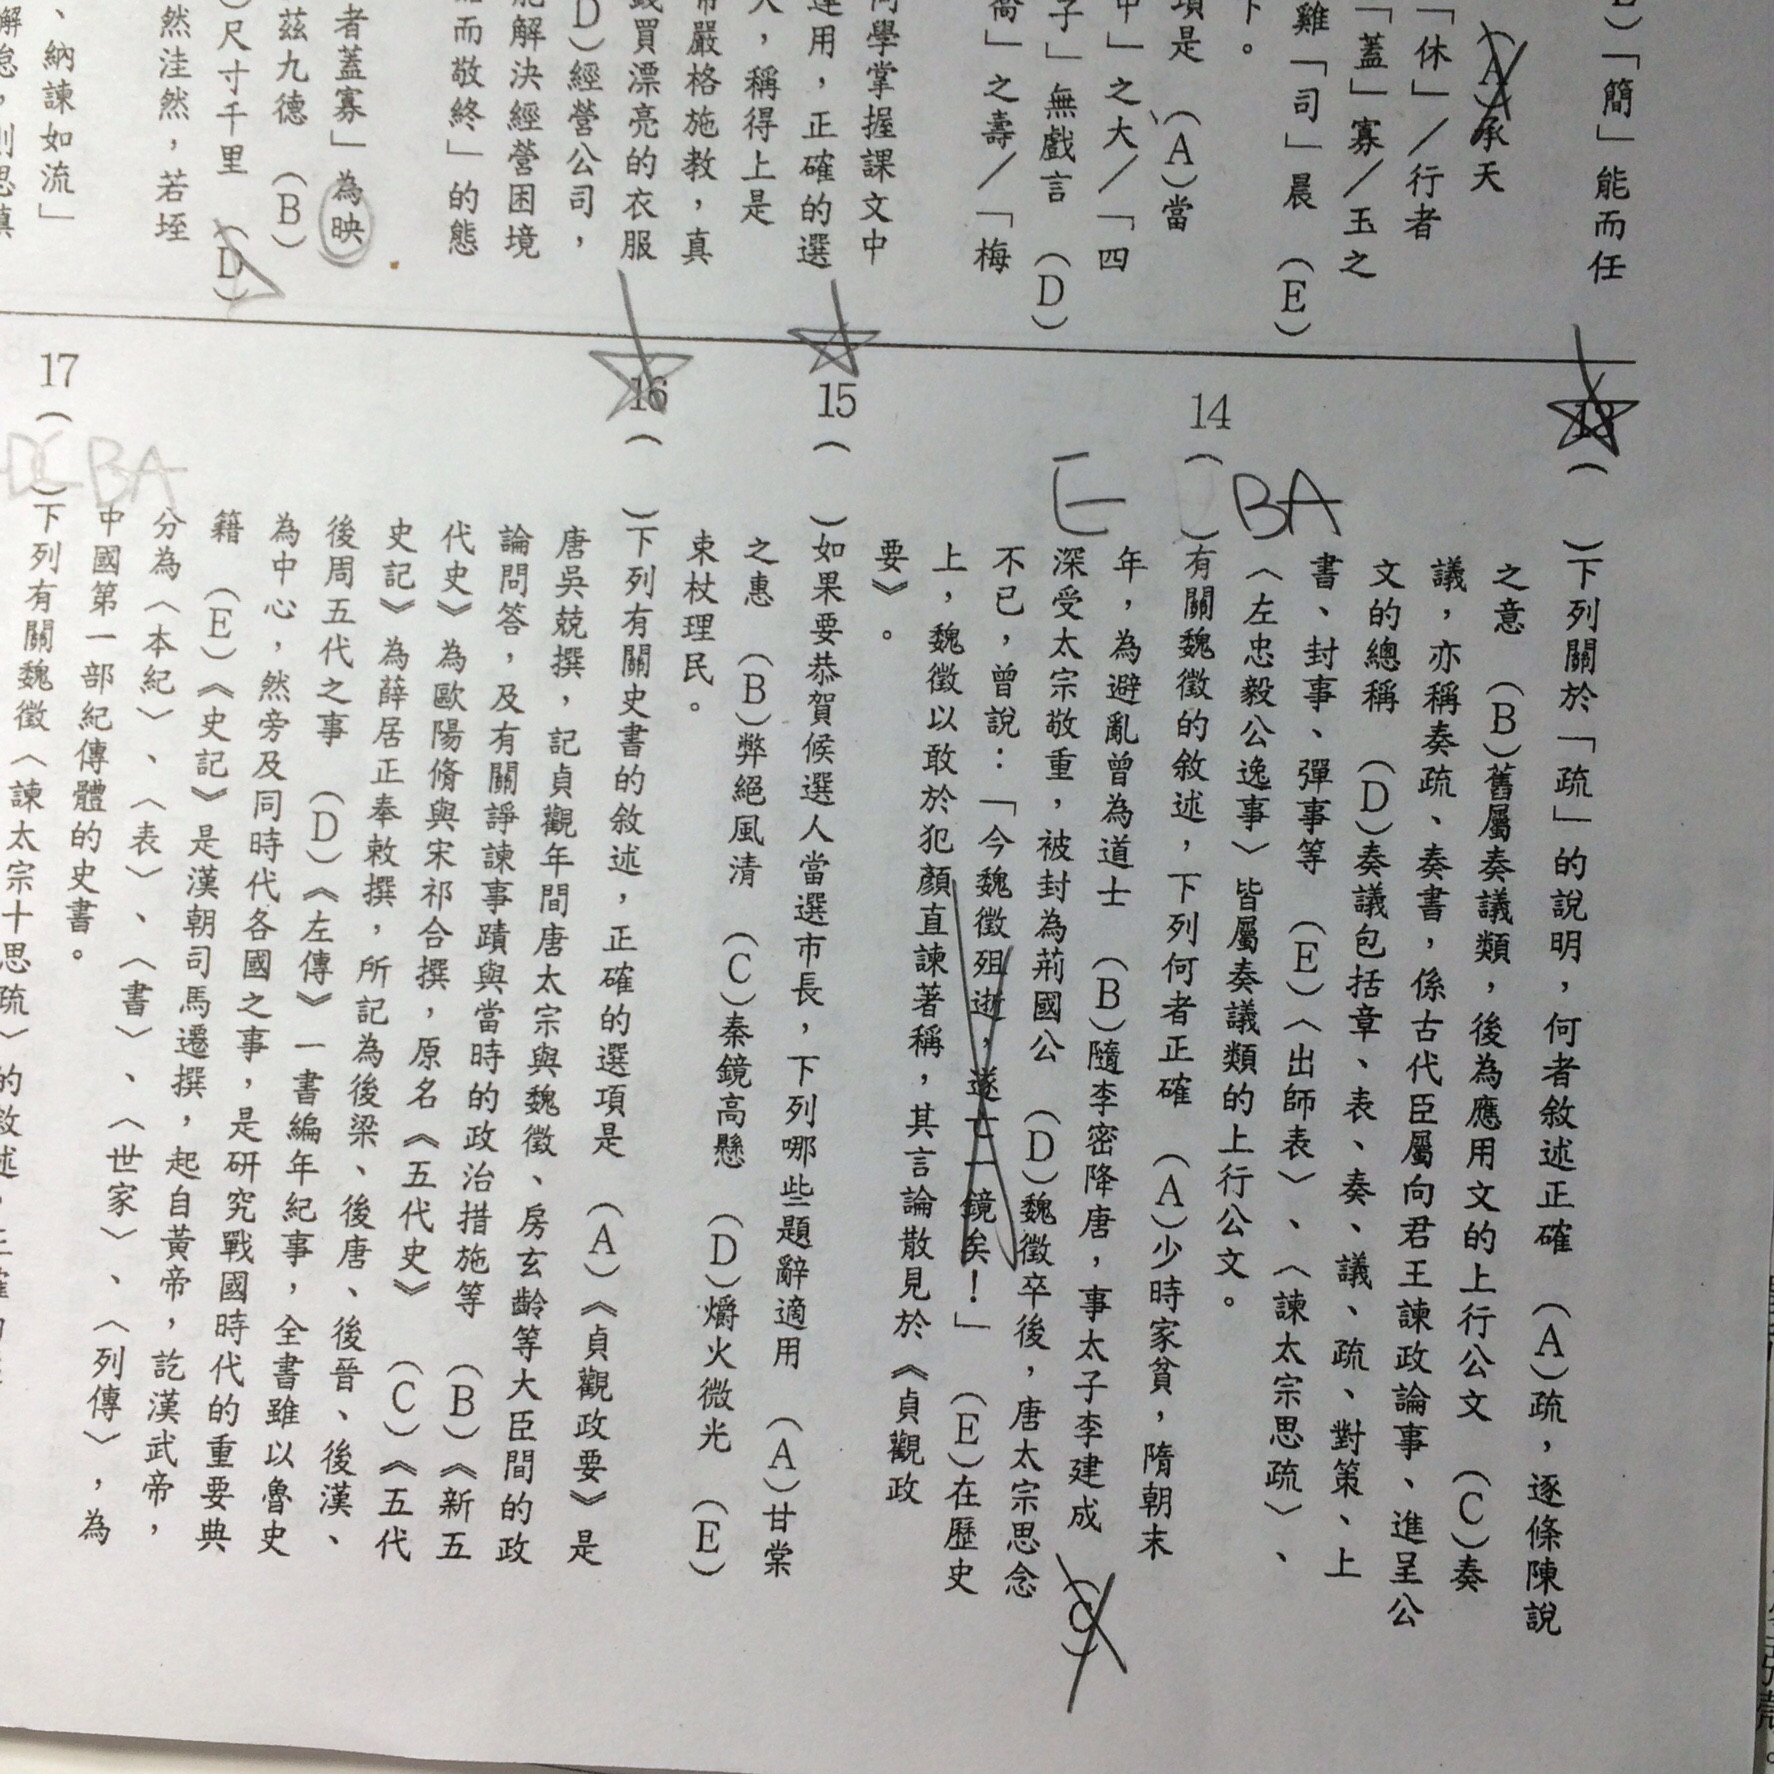 「簡」能而任
(A)承天
「休」／行者
「蓋」寡／玉之
雞「司」晨 (E)
下。
項是 (A)當
中」之大／「四
子」無戲言 (D)
喬」之壽／「梅
同學掌握課文中
運用，正確的選
人，稱得上是
常嚴格施教，真
錢買漂亮的衣服
D)經營公司，
能解決經營困境
而敬終」的態
者蓋寡」為映
茲九德 (B)
尺寸千里 (D)
然洼然，若垤
、納諫如流」
懈怠，則思慎
13 ( )下列關於「疏」的說明，何者敘述正確 (A)疏，逐條陳說
之意 (B)舊屬奏議類，後為應用文的上行公文 (C)奏
議，亦稱奏疏、奏書，係古代臣屬向君王諫政論事、進呈公
文的總稱 (D)奏議包括章、表、奏、議、疏、對策、上
書、封事、彈事等 (E)〈出師表〉、〈諫太宗思疏〉、
〈左忠毅公逸事〉皆屬奏議類的上行公文。
BA
E
14 ( )有關魏徵的敘述，下列何者正確 (A)少時家貧，隋朝末
年，為避亂曾為道士 (B)隨李密降唐，事太子李建成 (C)
深受太宗敬重，被封為荊國公 (D)魏徵卒後，唐太宗思念
不已，曾說：「今魏徵殂逝，遂亡一鏡矣！」 (E)在歷史
上，魏徵以敢於犯顏直諫著稱，其言論散見於《貞觀政
要》。
15 ( )如果要恭賀候選人當選市長，下列哪些題辭適用 (A)甘棠
之惠 (B)弊絕風清 (C)秦鏡高懸 (D)爝火微光 (E)
束杖理民。
16 ( )下列有關史書的敘述，正確的選項是 (A)《貞觀政要》是
唐吳兢撰，記貞觀年間唐太宗與魏徵、房玄齡等大臣間的政
論問答，及有關諍諫事蹟與當時的政治措施等 (B)《新五
代史》為歐陽脩與宋祁合撰，原名《五代史》 (C)《五代
史記》為薛居正奉敕撰，所記為後梁、後唐、後晉、後漢、
後周五代之事 (D)《左傳》一書編年紀事，全書雖以魯史
為中心，然旁及同時代各國之事，是研究戰國時代的重要典
籍 (E)《史記》是漢朝司馬遷撰，起自黃帝，訖漢武帝，
分為〈本紀〉、〈表〉、〈書〉、〈世家〉、〈列傳〉，為
中國第一部紀傳體的史書。
DCBA
17 ( )下列有關魏徵〈諫太宗十思疏〉的敘述，正確